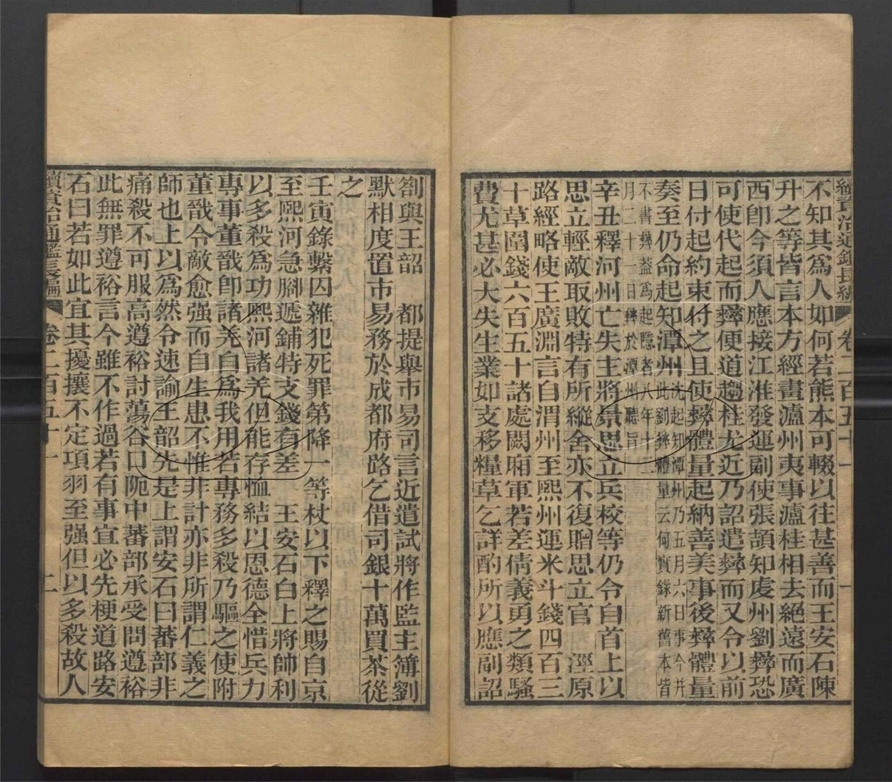 續資治通鑑長編 卷二百五十一 一
不知其爲人如何若熊本可輟以往甚善而王安石陳
升之等皆言本方經畫瀘州夷事瀘桂相去絕遠而廣
西卽今須人應接江淮發運副使張頡知虔州劉彝恐
可使代起而彝便道趨桂尤近乃詔遣彝而又令以前
日付起約束付之且使彝體量起納善美事後彝體量
奏至仍命起知潭州沈起知潭州乃五月六日事今幷
此劉彝體量云何實錄新舊本皆
不書彝益爲起隱者八年十
月二十一日彝於潭州聽旨
辛丑釋河州亡失主將景思立兵校等仍令自首上以
思立輕敵取敗特有所縱舍亦不復贈思立官 涇原
路經略使王廣淵言自渭州至熙州運米斗錢四百三
十草圍錢六百五十諸處闕廂軍若差倩義勇之類騷
費尤甚必大失生業如支移糧草乞詳酌所以應副詔
劄與王韶 都提舉市易司言近遣試將作監主簿劉
默相度置市易務於成都府路乞借司銀十萬買茶從
之
壬寅錄繫囚雜犯死罪第降一等杖以下釋之賜自京
至熙河急腳遞鋪特支錢有差 王安石白上將帥利
以多殺爲功熙河諸羌但能存恤結以恩德全惜兵力
專事董戩卽諸羌自爲我用若專務多殺乃驅之使附
董戩令敵愈强而自生患不惟非計亦非所謂仁義之
師也上以爲然令速諭王韶先是上謂安石曰蕃部非
痛殺不可服高遵裕討蕩谷口阨中蕃部承受問遵裕
此無罪遵裕言今雖不作過若有事宜必先梗道路安
石曰若如此宜其擾攘不定項羽至强但以多殺故人
續資治通鑑長編 卷二百五十一 二